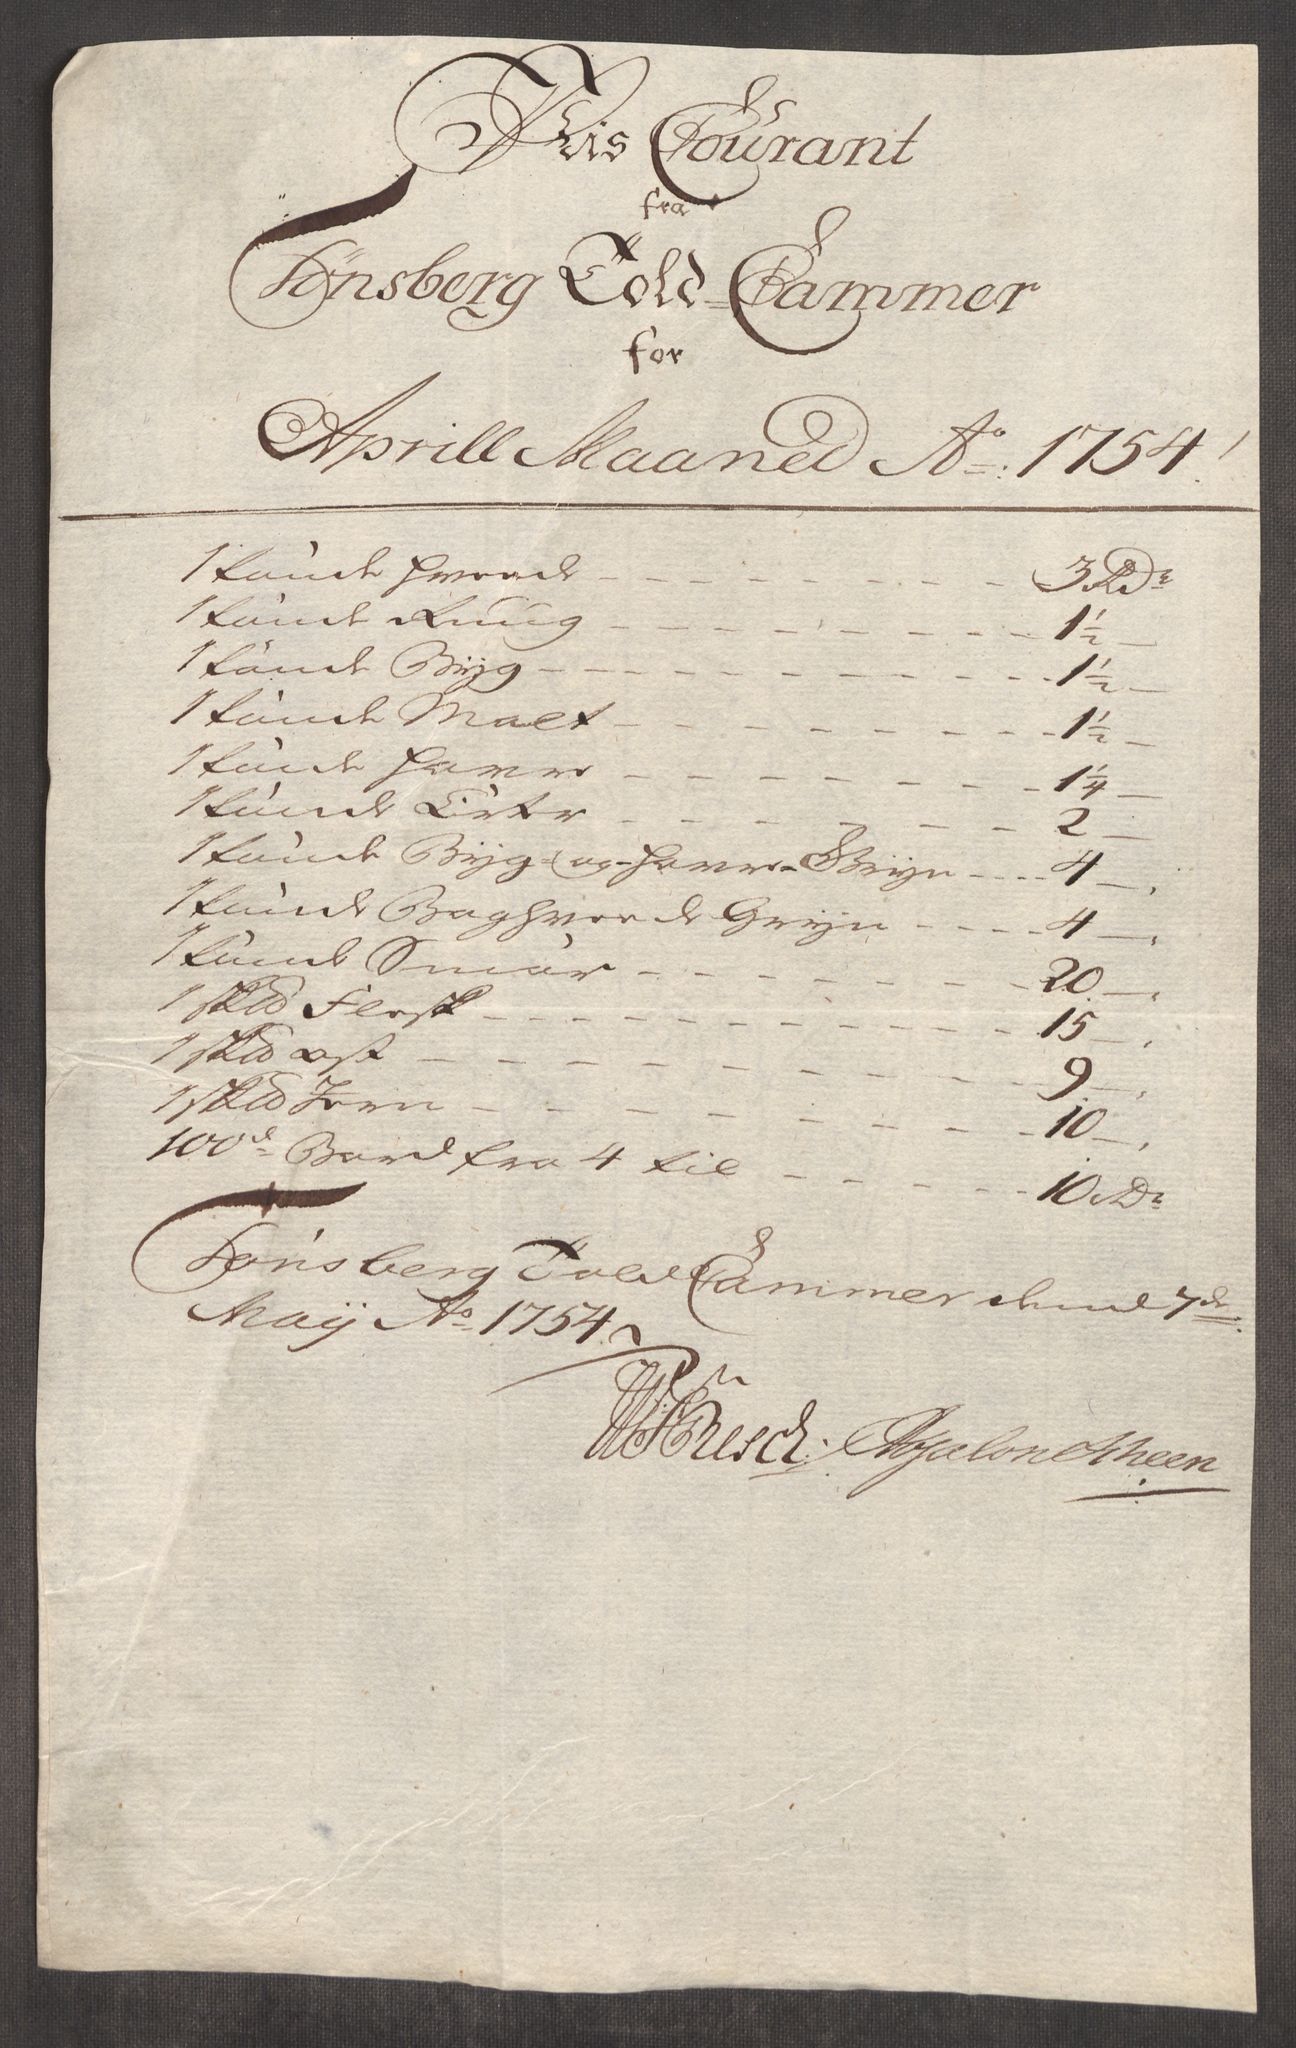 Priis Courant
fra
Tønsberg Told-Cammer
for
Aprill Maaned Ao: 1754
1 tønde hvede - - - 3 Rdr
1 tønde Rug - - - 1½ —
1 tønde Byg - - - 1½ —
1 tønde Malt - - - 1½ —
1 tønde Havre - - - 1¼ —
1 tønde Erter - - - 2 —
1 tønde Byg- og Havre-Gryn - - - 4 —
1 tønde Boghvede Gryn - - - 4 —
1 tønde Smør - - - 20 —
1 sk℔ Flesk - - - 15 —
1 sk℔ ost - - - 9 —
1 sk℔ Jern - - - 10 —
100de Bord fra 4 til - - - 10 Rdr
Tønsberg Told Cammer dend 7de
Maij Ao 1754
Resch. Absalon Scheen